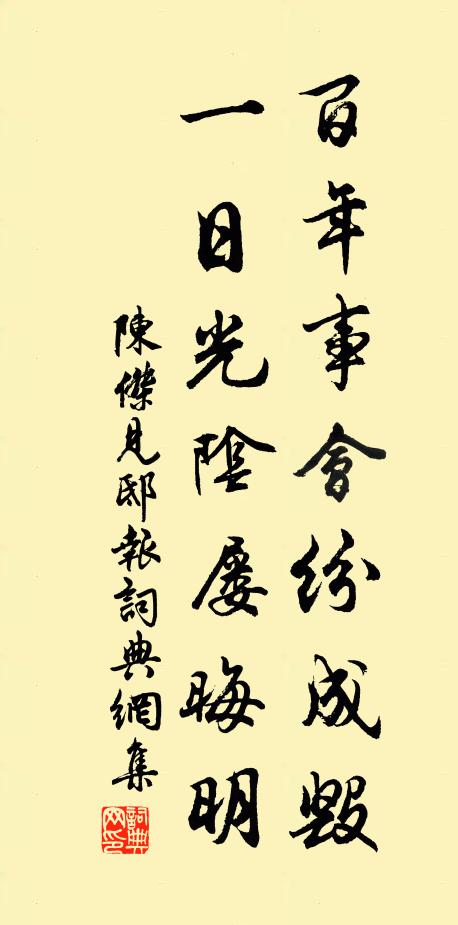 百年事會紛成毀
一日光陰屢晦明
陳傑見邸報詞典網集
詞典網印